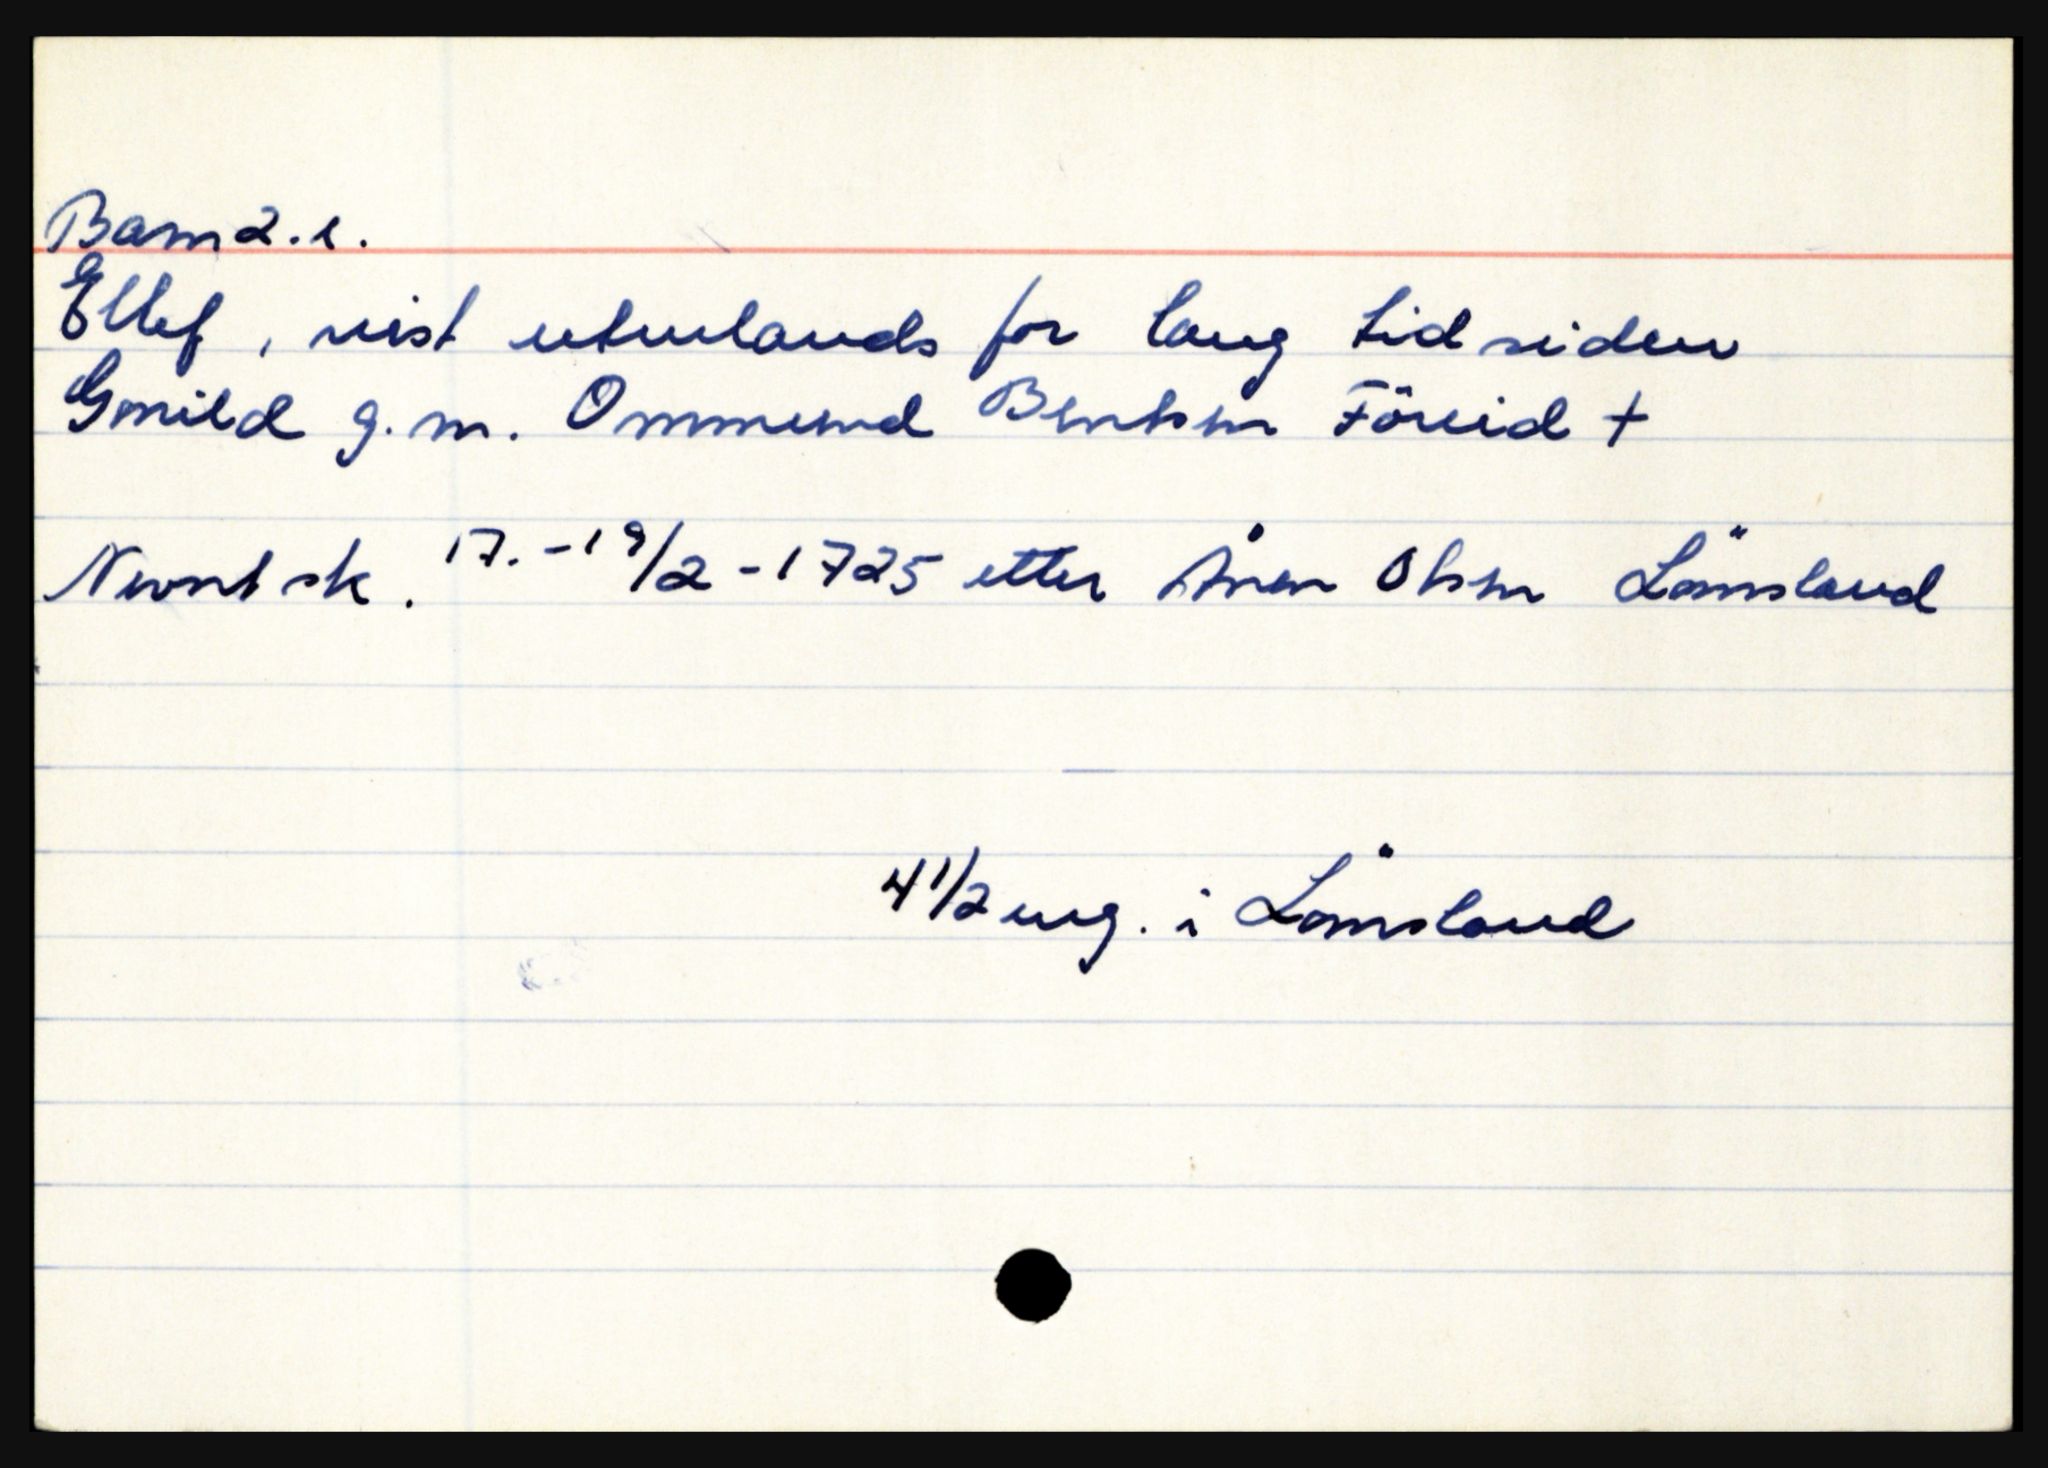 Barn 2. e.
Ellef, reist utenlands for lang tid siden
Gunild g. m. Ommund Berntsen Föreid +
Nevnt sk. 17.-19/2-1725 etter Ånen Olsen Lömsland
4 1/2 eng. i Lömsland